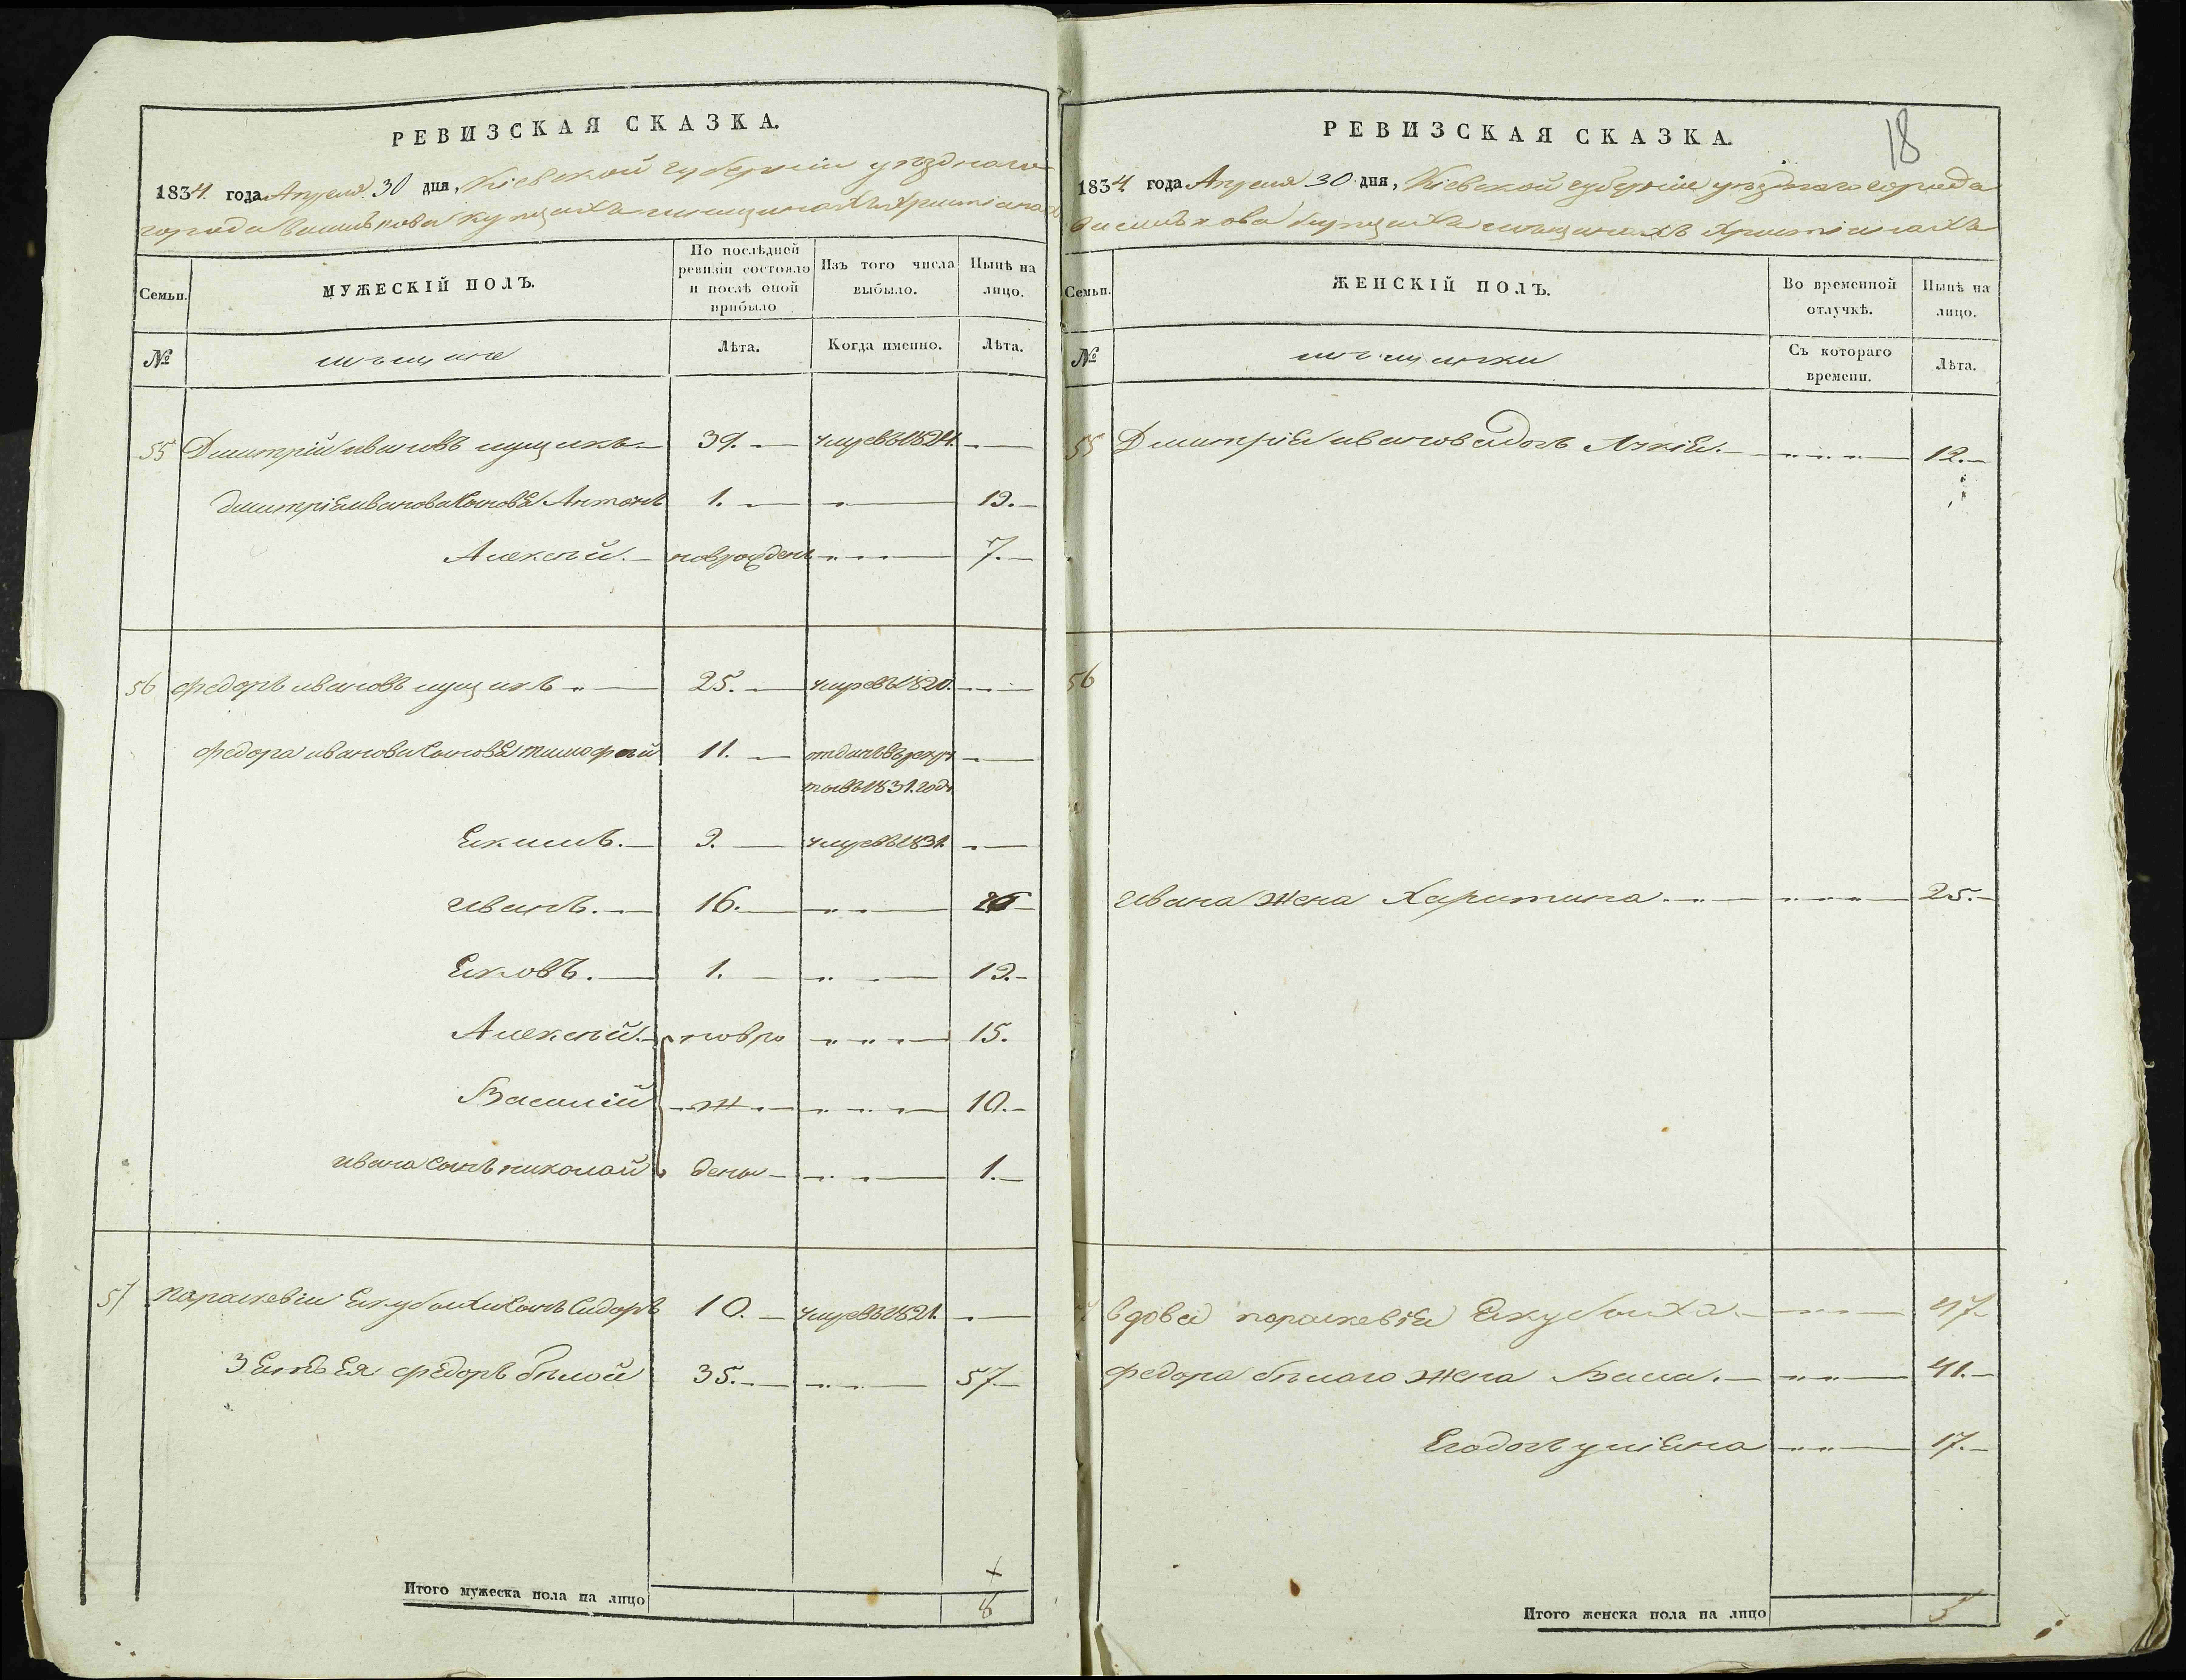 РЕВИЗСКАЯ СКАЗКА.
1834 года Апреля 30 дня, Кіевской губерніи уѣзднаго
города Василькова купцахъ мещинахъ христіанахъ
Семьи.
МУЖЕСКІЙ ПОЛЪ.
По послѣдней ревизіи состояло и послѣ оной прибыло
Изъ того числа выбыло.
Нынѣ на лицо.
№
мещане
Лѣта.
Когда именно.
Лѣта.
55 Дмитрій ивановъ 39. умре въ 1824.
Дмитрія иванова сыновья Антонъ 1. 19.
Алексѣй. новрожденъ 7.
56 Федоръ ивановъ 25. умре въ 1820.
Федора иванова сыновья тимофей 11. отданъ въ рекру
ты въ 1831. годѣ
Екимъ. 9. умре въ 1831.
иванъ. 16.
Яковъ. 1. 19.
Алексѣй. новро 15.
Василій ж 10.
ивана сынъ николай дены 1.
57 параскевіи сынъ Сидоръ 10. умре въ 1821.
Зять Ея Федоръ бѣлой 35. 57
Итого мужеска пола на лицо 8
18
РЕВИЗСКАЯ СКАЗКА.
1834 года Апреля 30 дня, Кіевской губерніи уѣзднаго города
Василькова купцахъ мещинахъ христіанахъ
Семьи.
ЖЕНСКІЙ ПОЛЪ.
Во временной отлучкѣ.
Нынѣ на лицо.
№
мещанки
Съ котораго времени.
Лѣта.
55 Дмитрія иванова дочь 12.
56
ивана жена Харитина. 25.
7 вдова параскевія 47
Федора бѣлаго жена Васа. 41.
Ея дочь уліяна 17.
Итого женска пола на лицо 5